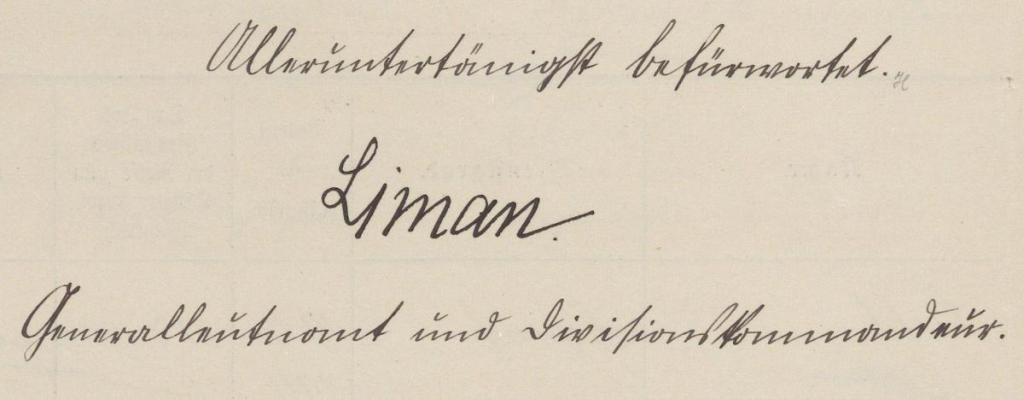 Alleruntertänigst befürwortet.
Liman.
Generalleutnant und Divisionskommandeur.